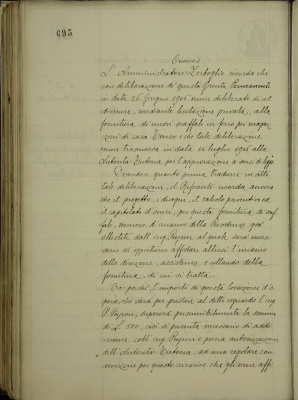 695
Omissis
L'Amministratore Zerboglio ricorda che
con deliberazione di questa Giunta Permanente
in data 26 Giugno 1901 venne deliberato di ad
divenire, mediante licitazione privata, alla
fornitura di nuovi scaffali in ferro pei magaz
zini di casa e che tale deliberazione
venne trasmessa in data Luglio 1901 alla
Autorità Tutoria, per l'approvazione a sensi di legge.
Dovendosi quanto prima tradurre in atto
tale deliberazione, il Referente ricorda ancora
che il progetto, i disegni, il calcolo preventivo e
il capitolato d'oneri, per questa fornitura di scaf
fali, vennero, d'incarico della Presidenza, già
allestiti dall'ing. al quale, sarà neces
sario ed opportuno affidare altresì l'incarico
della direzione, assistenza, e collaudo della
fornitura di cui si tratta.
Ma poichè l'importo di questa locazione d'o
pera, che sarà per prestare al detto riguardo l'ing.
supererà presumibilmente la somma
di L. 500, così si presenta necessario di addi
venire coll'ing. e previa autorizzazione
dell'Autorità Tutoria, ad una regolare con
venzione per questo incarico che gli viene affi